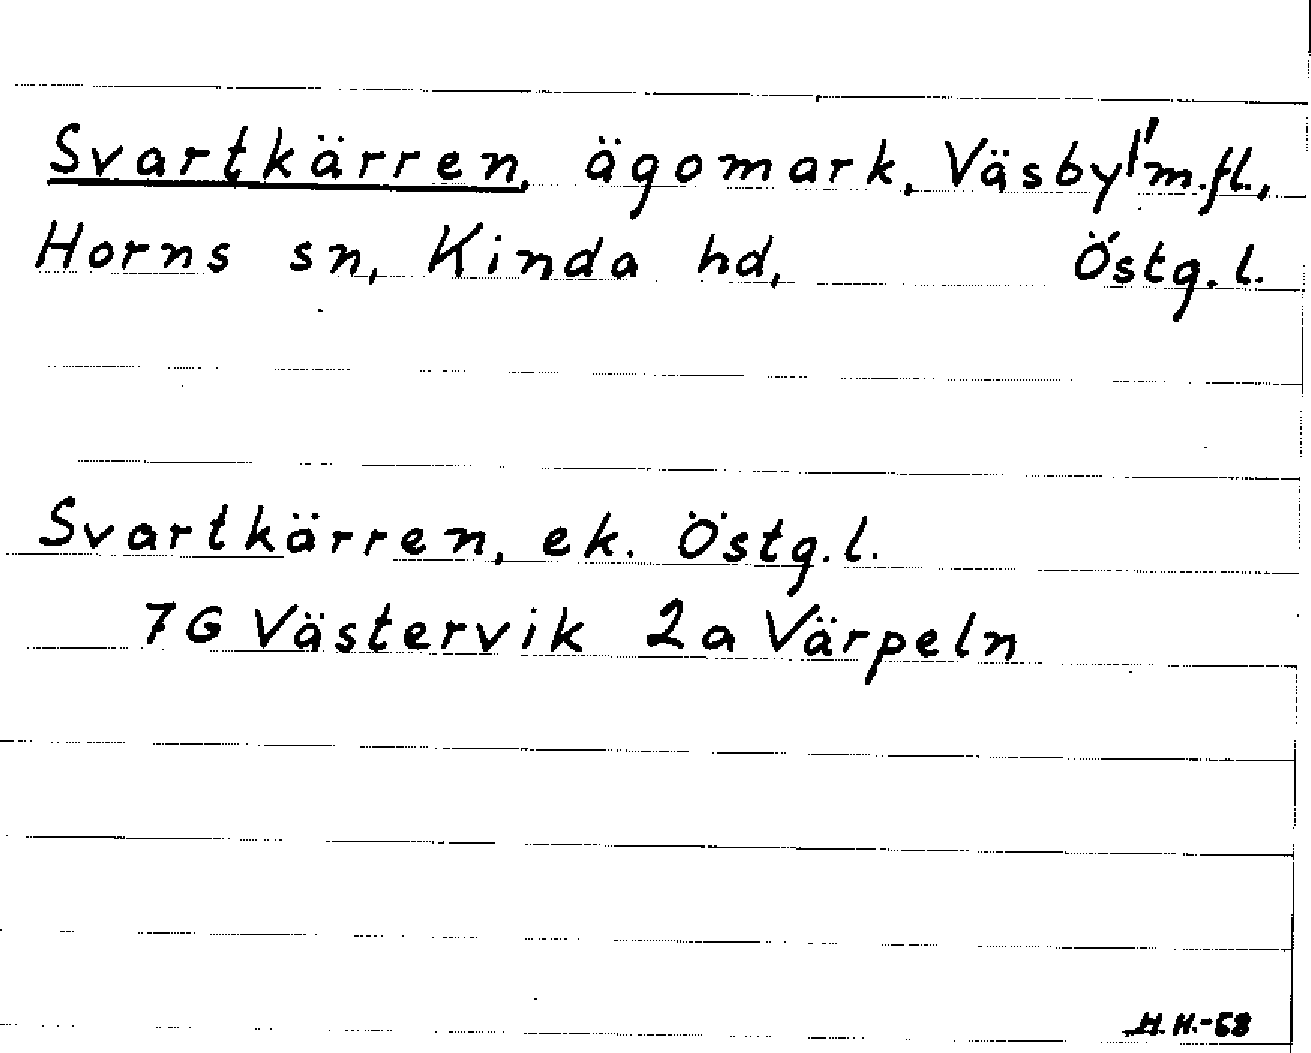 Svartkärren, ägomark, Väsby 1' m.fl.,
Horns sn, Kinda hd, Östg. l.
Svartkärren, ek. Östg. l.
7G Västervik 2a Värpeln
H.H.-68